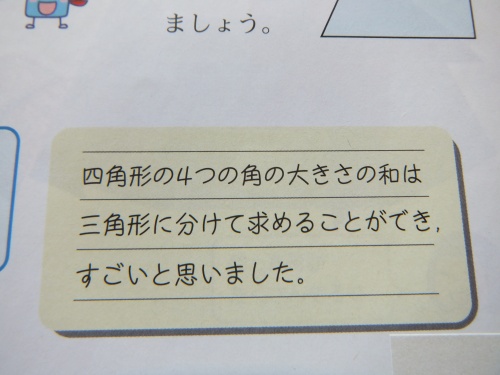 ましょう。
四角形の4つの角の大きさの和は
三角形に分けて求めることができ,
すごいと思いました。